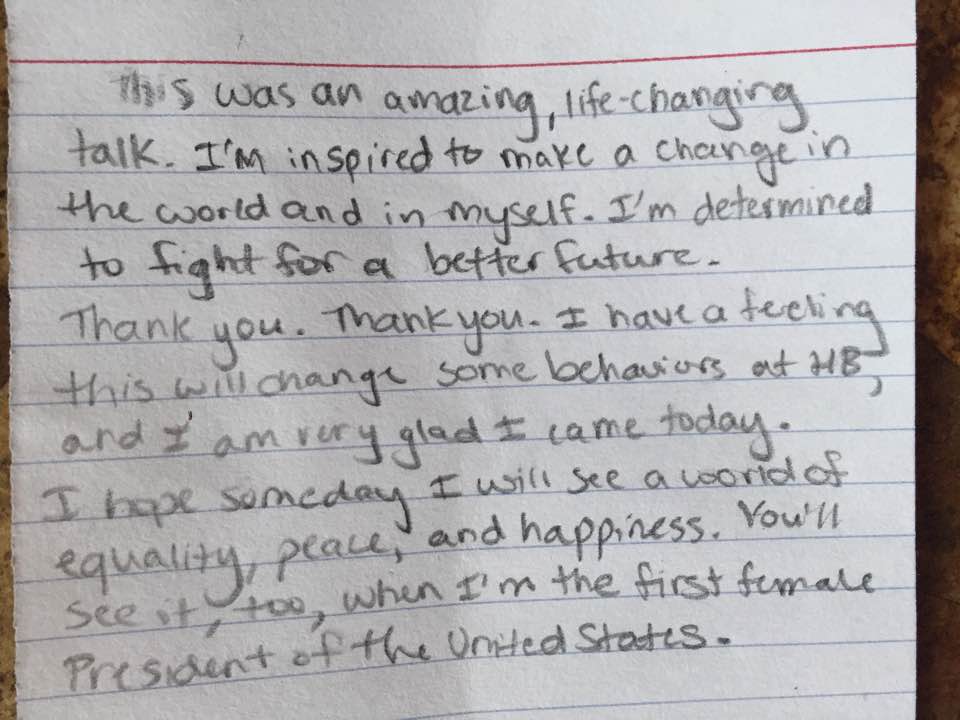 This was an amazing, life-changing
talk. I'm inspired to make a change in
the world and in myself. I'm determined
to fight for a better future.
Thank you. Thank you. I have a feeling
this will change some behaviors at HB,
and I am very glad I came today.
I hope someday I will see a world of
equality, peace, and happiness. You'll
see it, too, when I'm the first female
President of the United States.